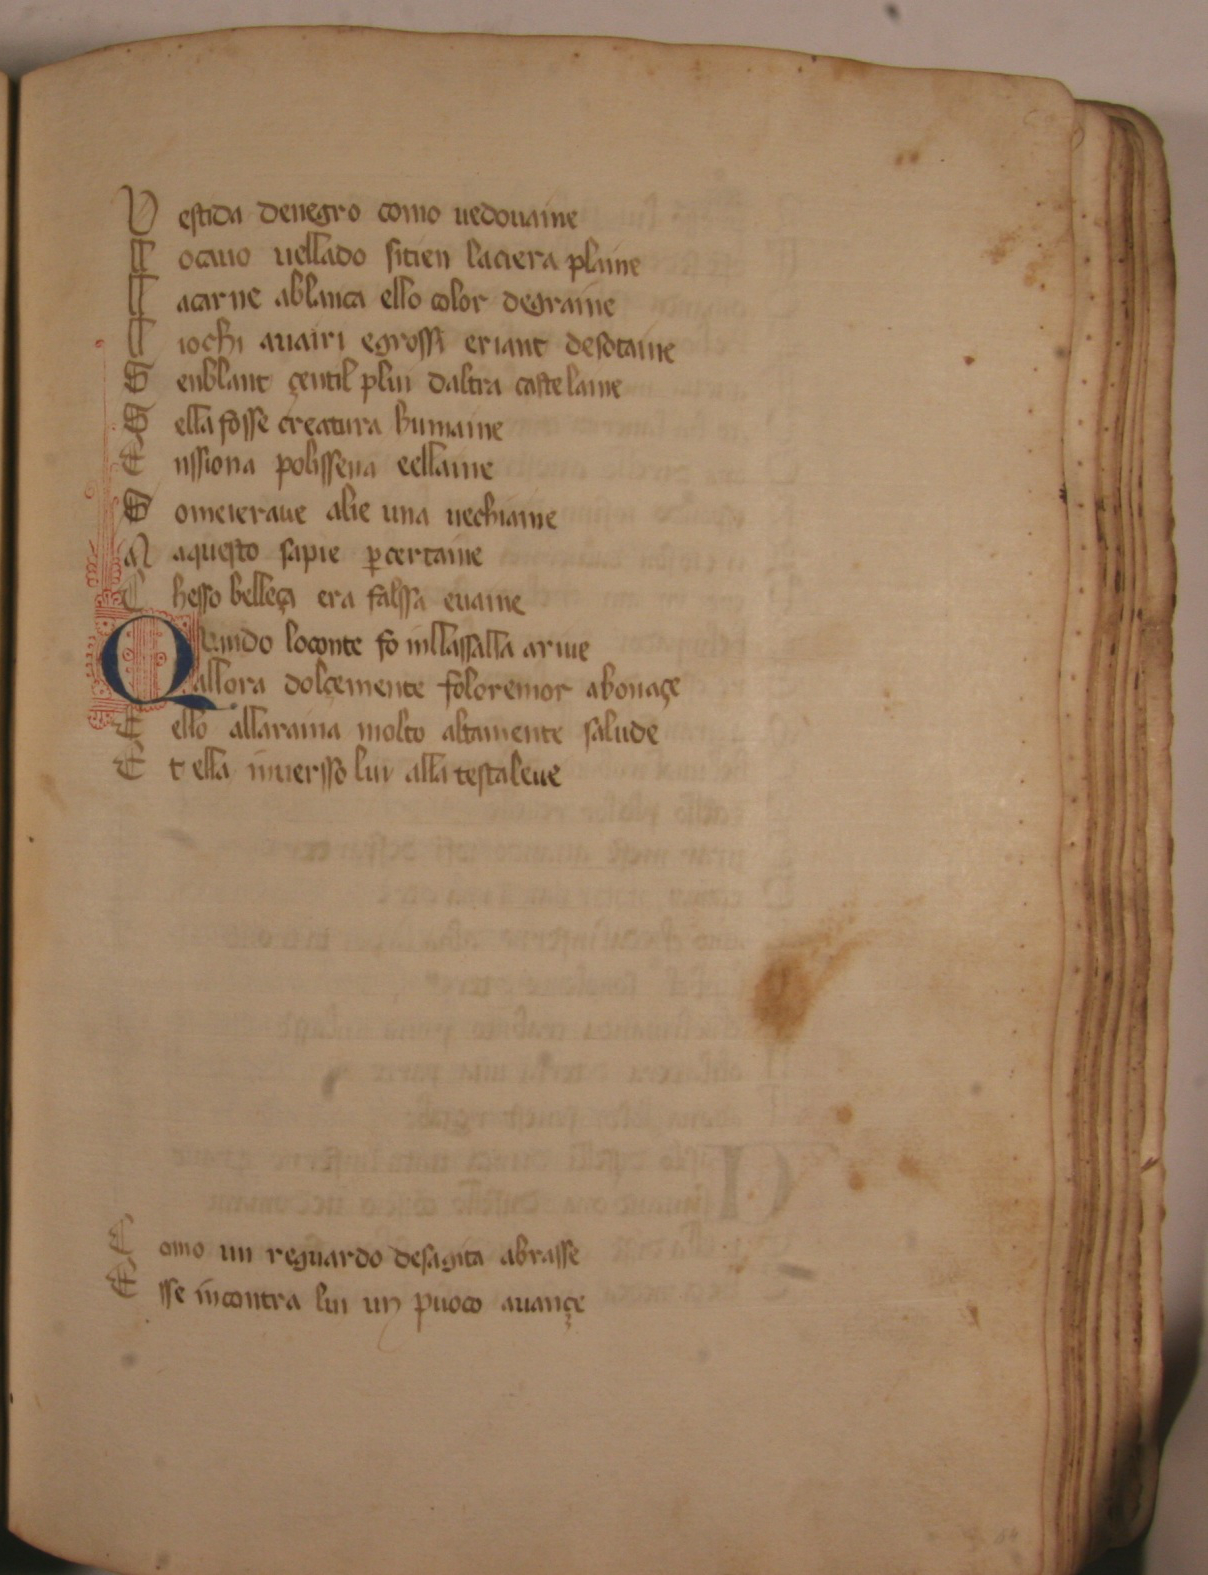 V estida denegro como uedouaine
L ocauo uellado sitien laciera plaine
L acarne ablanca ello color degraine
L iochi auairi egrossi eriant desotaine
S enblant çentil plui daltra castelaine
S ella fosse creatura humaine
E nssiona polissena eellaine
S omeieraue alie una uechiaine
M aquesto sapie ꝑcertaine
C hesso belleça era falssa euaine
Quando loconte fo inllassalla ariue
allora dolçemente foloremor abonaçe
E ello allaraina molto altamente salude
E t ella inuersso lui alla testaleue
C omo un reguardo desagita abrasse
E sse incontra lui un puoco auançe